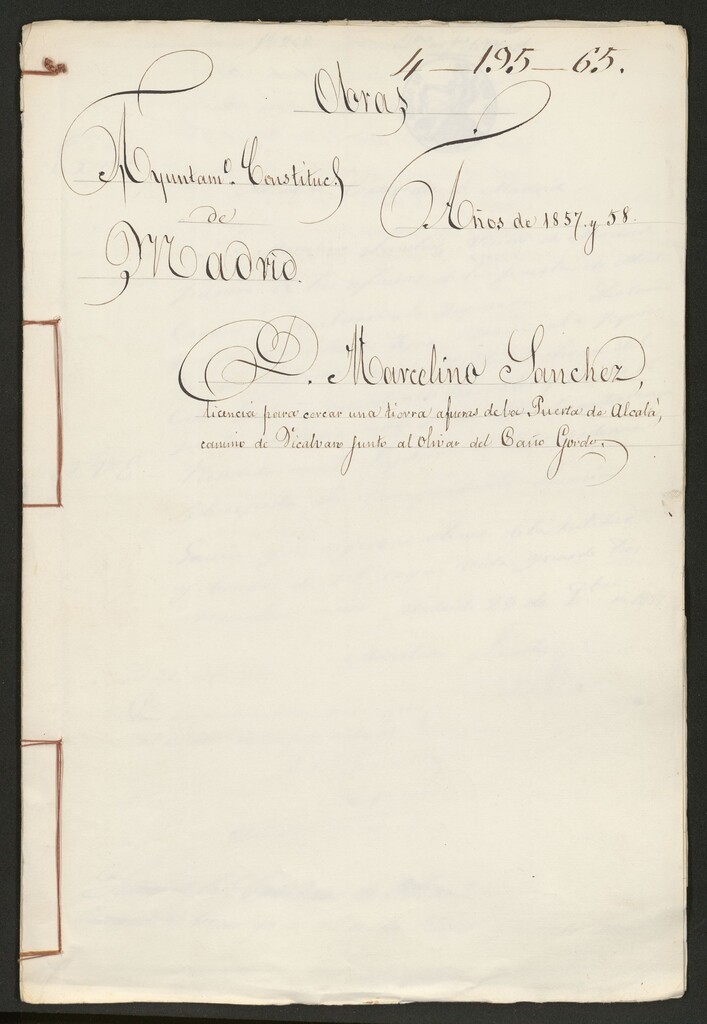 4-195-65.
Obras
Ayuntam.º Constituc.l
de
Madrid.
Años de 1857. y 58.
D. Marcelino Sanchez,
licencia para cercar una tierra afueras de la Puerta de Alcalá,
camino de Vicalvaro junto al Olivar del Caño Gordo.